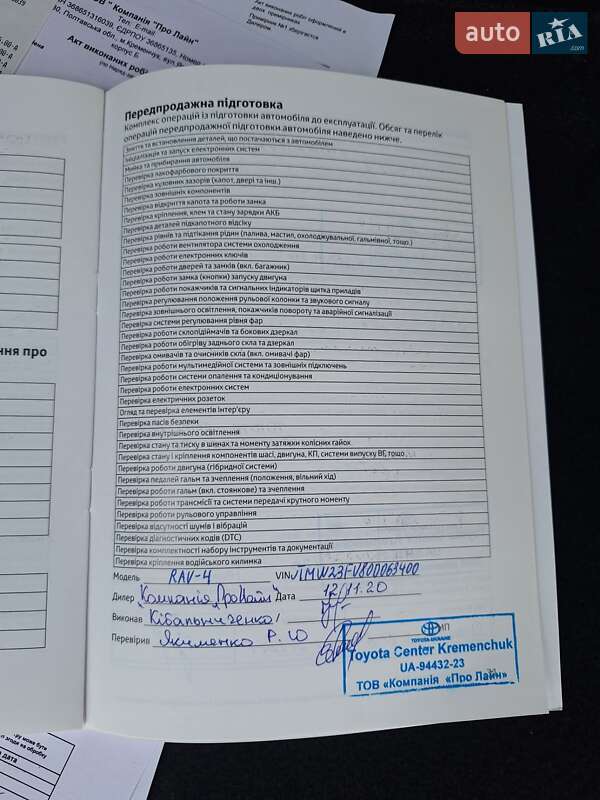 В " Компанія "Про Лайн"
Тел. E-mail
Акт виконаних роб
корпус Б
auto RIA .com
Передпродажна підготовка
Комплекс операцій із підготовки автомобіля до експлуатації. Обсяг та перелік
операцій передпродажної підготовки автомобіля наведено нижче.
Зняття та встановлення деталей, що постачаються з автомобілем
Ініціалізація та запуск електронних систем
Мийка та прибирання автомобіля
Перевірка лакофарбового покриття
Перевірка кузовних зазорів (капот, двері та інш.)
Перевірка зовнішніх компонентів
Перевірка відкриття капота та роботи замка
Перевірка кріплення, клем та стану зарядки АКБ
Перевірка деталей підкапотного відсіку
Перевірка рівнів та підтікання рідин (палива, мастил, охолоджувальної, гальмівної, тощо.)
Перевірка роботи вентилятора системи охолодження
Перевірка роботи електронних ключів
Перевірка роботи дверей та замків (вкл. багажник)
Перевірка роботи замка (кнопки) запуску двигуна
Перевірка роботи покажчиків та сигнальних індикаторів щитка приладів
Перевірка регулювання положення рульової колонки та звукового сигналу
Перевірка зовнішнього освітлення, покажчиків повороту та аварійної сигналізації
Перевірка системи регулювання рівня фар
Перевірка роботи склопідіймачів та бокових дзеркал
Перевірка роботи обігріву заднього скла та дзеркал
Перевірка омивачів та очисників скла (вкл. омивачі фар)
Перевірка роботи мультимедійної системи та зовнішніх підключень
Перевірка роботи системи опалення та кондиціонування
Перевірка роботи електронних систем
Перевірка електричних розеток
Огляд та перевірка елементів інтер'єру
Перевірка пасів безпеки
Перевірка внутрішнього освітлення
Перевірка стану та тиску в шинах та моменту затяжки колісних гайок
Перевірка стану і кріплення компонентів шасі, двигуна, КП, системи випуску ВГ, тощо
Перевірка роботи двигуна (гібридної системи)
Перевірка педалей гальм та зчеплення (положення, вільний хід)
Перевірка роботи гальм (вкл. стоянкове) та зчеплення
Перевірка роботи трансмісії та системи передачі крутного моменту
Перевірка роботи рульового управління
Перевірка відсутності шумів і вібрацій
Перевірка діагностичних кодів (DTC)
Перевірка комплектності набору інструментів та документації
Перевірка кріплення водійського килимка
Модель RAV-4 VIN JTMW23FV80D063400
Дилер "Компанія "Про Лайн" Дата 12/11.20
Виконав Кібальниченко
Перевірив Якименко Р. Ю
МП
TOYOTA UKRAINE
Toyota Center Kremenchuk
UA-94432-23
ТОВ «Компанія «Про Лайн»
ння про
дата